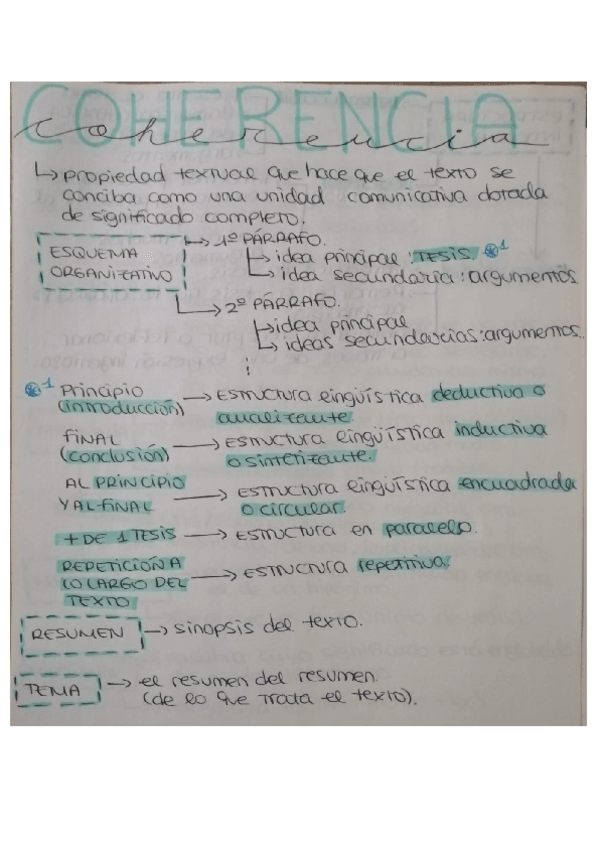 COHERENCIA
coherencia
↳ propiedad textual que hace que el texto se
conciba como una unidad comunicativa dotada
de significado completo.
ESQUEMA
ORGANIZATIVO
↳ 1º PÁRRAFO.
↳ idea principal: TESIS. ⊛1
↳ idea secundaria: argumentos
↳ 2º PÁRRAFO.
↳ idea principal
↳ ideas secundarias: argumentos..
⋮
⊛1 Principio → ESTRUCTURA lingüística deductiva o
(introducción) analizante.
FINAL → ESTRUCTURA lingüística inductiva
(conclusión) o sintetizante.
AL PRINCIPIO → ESTRUCTURA lingüística encuadrada
Y AL FINAL o circular.
+ DE 1 TESIS → ESTRUCTURA en paralelo.
REPETICIÓN A
LO LARGO DEL → ESTRUCTURA repetitiva.
TEXTO
RESUMEN → sinopsis del texto.
TEMA → el resumen del resumen.
(de lo que trata el texto).